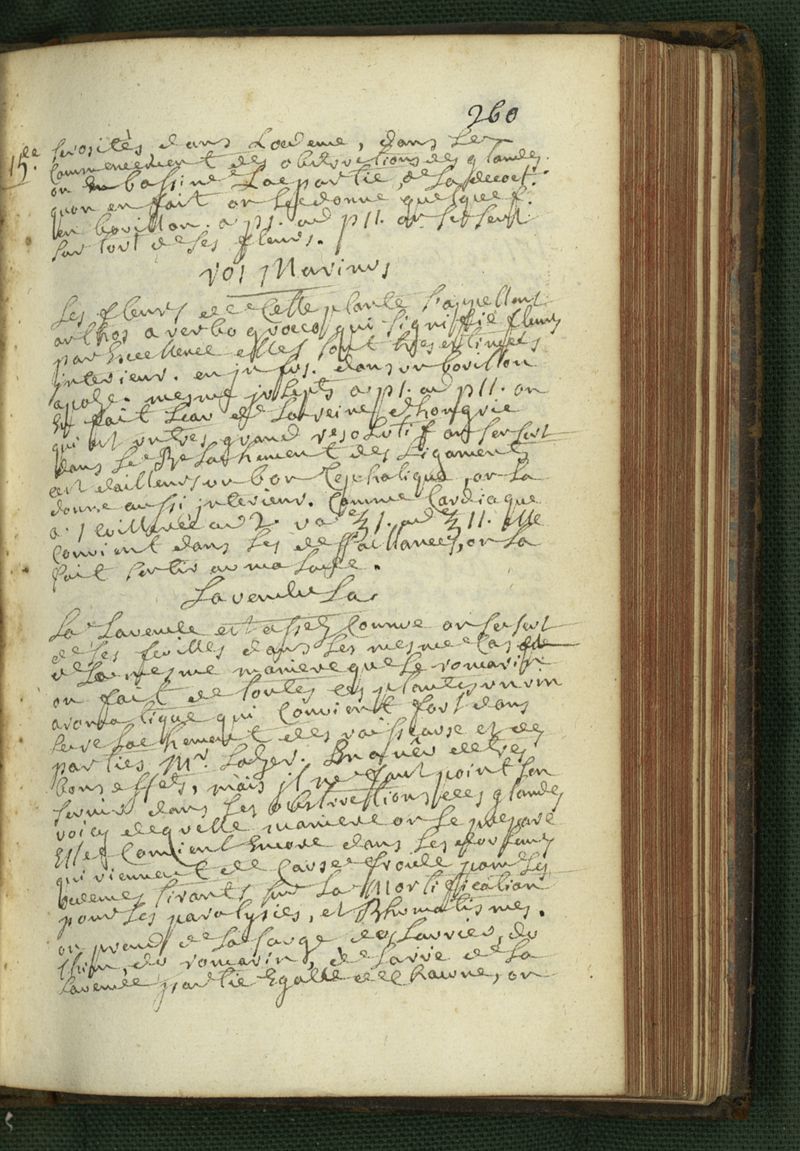 260
15.ee
serosités dans L'oedeme, dans Le
Commencement des obstructions des glandes.
on En bassine La partie, de La decoct:
quon en fait on Le donne quelque f:
en bouillon. a p1. ad p11. on se sert
sur tout de ses fleurs.
ros Marinus
Les fleurs de Cette plante s'appellent
anthos a verbo graeco qui signiffie fleurs
par Excellence elles sont tres estimées
interieur. en infus. dans un bouillon
apoze. mesme juleps a p1. ad p11. on
En fait L'eau de La reine d'hongrie
qui est un tres grand resolutif on se sert
dans Le Relachement des Ligaments
est d'ailleurs un bon Cephalique, on La
donne aussi interieur. Comme Cardiaque
a 1 Cuillerée ad 2. ʒ1. ad ʒ11. elle
Convient dans Les deffaillances, on La
fait sentir au malade.
Lavendula
La Lavende est assez Connue on se sert
de ses feuilles dans Les mesme Cas
de La mesme maniere que Le romarin
on fait de toutes ces plantes un vin
aromatique qui Convient fort dans
Le relachement des vaisseaux et des
parties Mr. En a veu de tres
bons effets, mais il ne faut point s'en
servir dans Les obstructions des glandes
voicy de quelle maniere on Le prepare
Elles Convient Encore dans Les
qui viennent de Cause froide pour Les
oedemes tirants sur La Mortiffication
pour Les paralysies, et Rhumatismes.
on prend de La sauge du Laurier, du
thim, du romarin, de La rüe de La
Lavende partie Egalle de Chacune, on